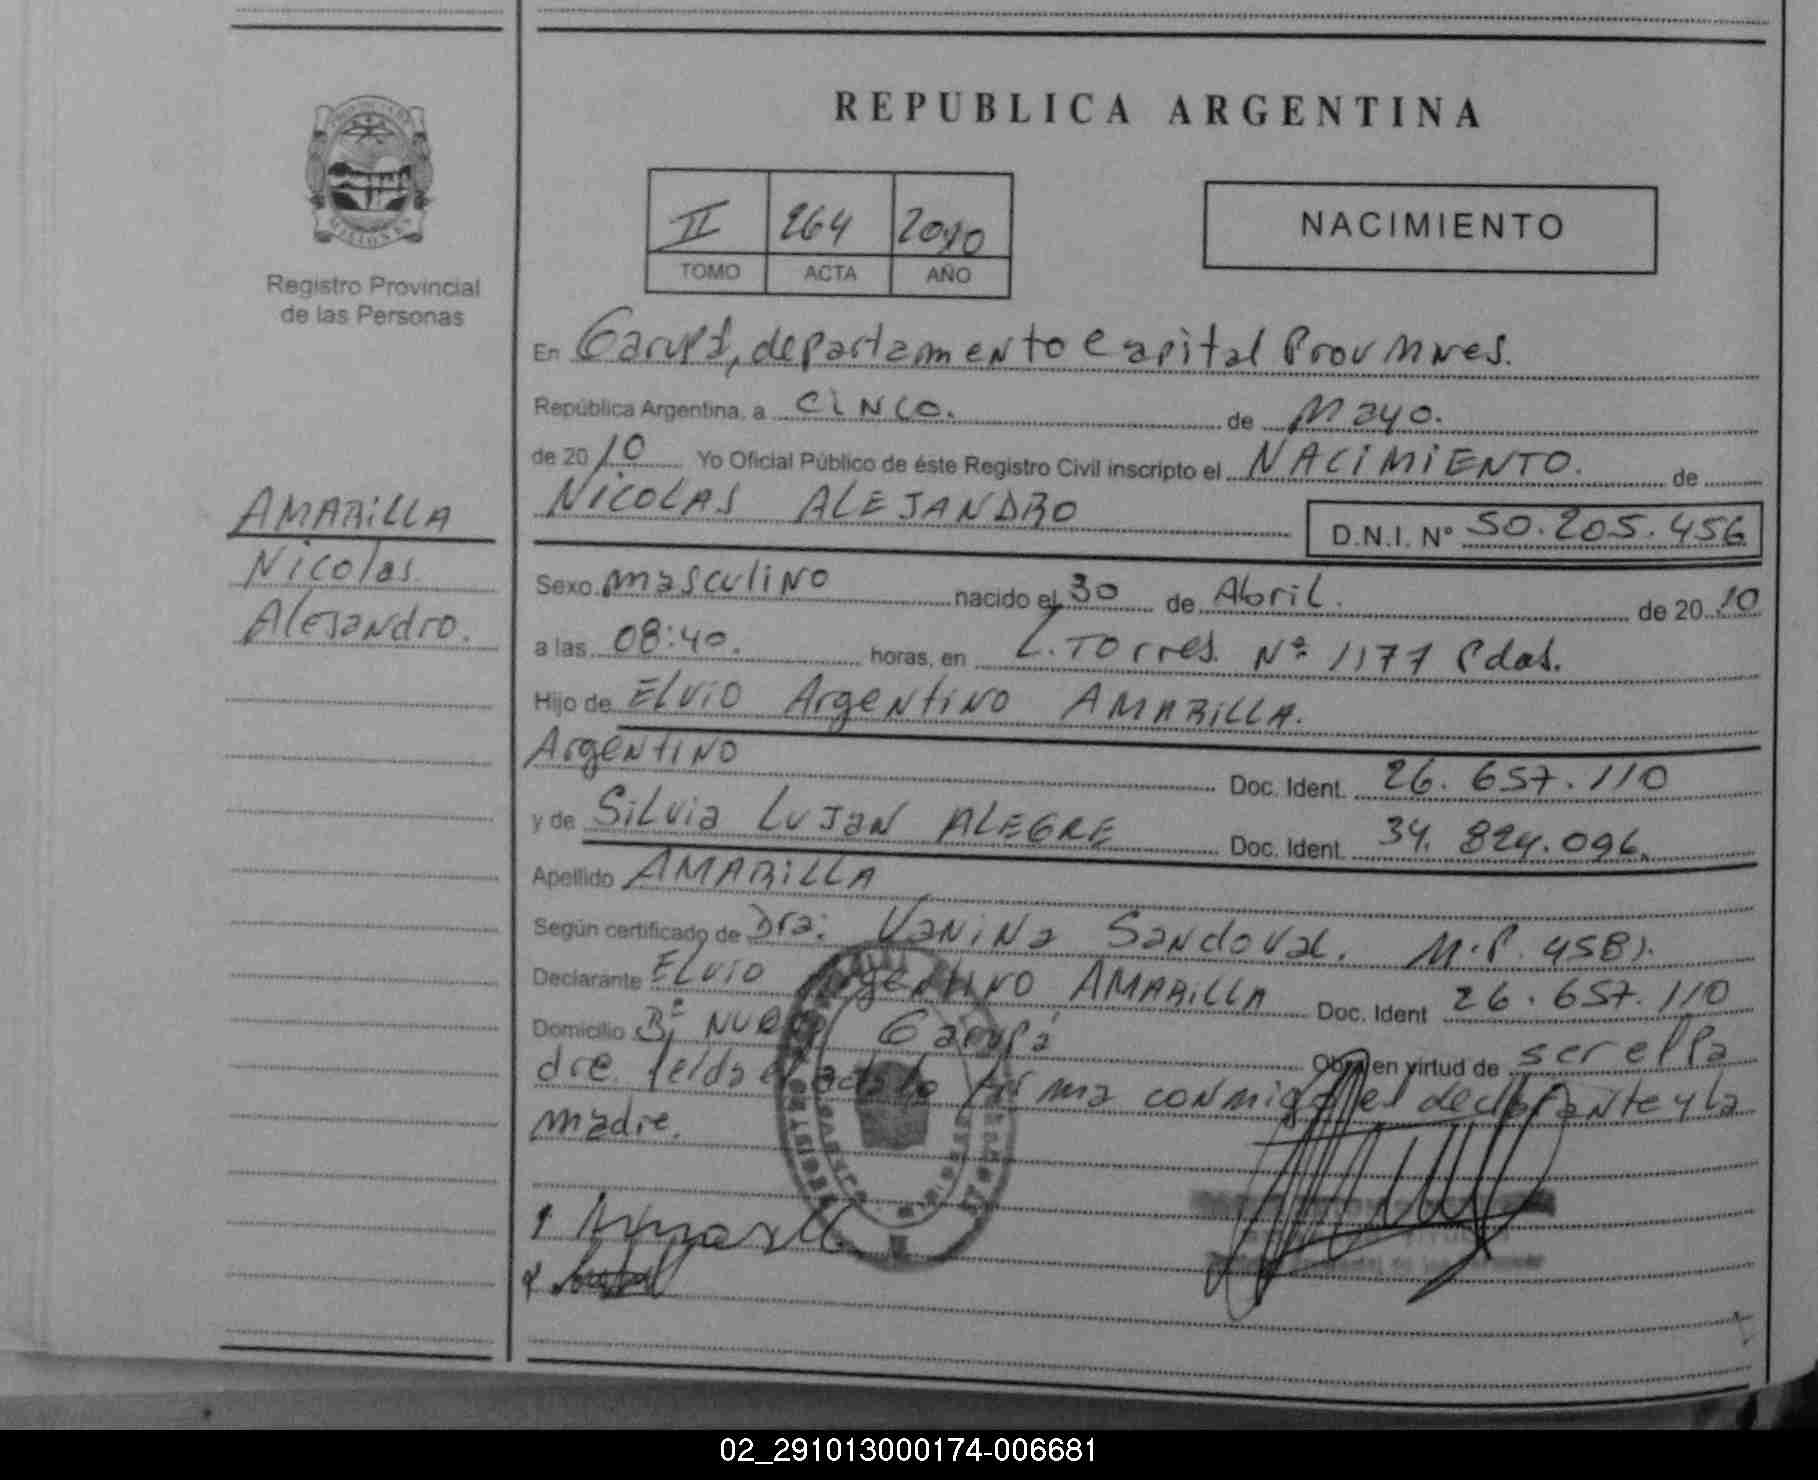 REPUBLICA ARGENTINA
II 264 2010
TOMO ACTA AÑO
NACIMIENTO
Registro Provincial
de las Personas
AMARILLA
Nicolas
Alejandro.
En Garupá, departamento Capital Prov Mnes.
República Argentina, a CINCO. de Mayo.
de 20 10 Yo Oficial Público de éste Registro Civil inscripto el NACIMIENTO. de
NICOLAS ALEJANDRO D.N.I. Nº 50.205.456
Sexo masculino nacido el 30 de Abril. de 20 10
a las 08:40. horas, en L. Torres. Nº 1177 Pdas.
Hijo de ELVIO Argentino AMARILLA.
Argentino Doc. Ident. 26.657.110
y de Silvia Lujan ALEGRE Doc. Ident. 34.824.096.
Apellido AMARILLA
Según certificado de Dra: Vanina Sandoval. M.P. 4581.
Declarante ELVIO Argentino AMARILLA Doc. Ident 26.657.110
Domicilio Bº NUEVO Garupá Obra en virtud de ser el Pa
dre. leída el acta lo firma conmigo el declarante y la
madre.
02_291013000174-006681